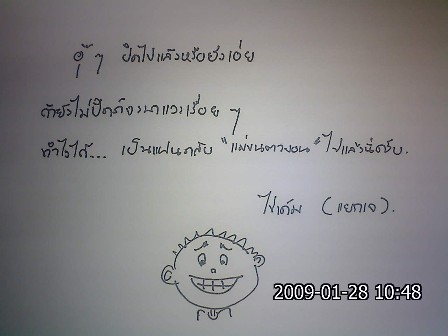 อุ๊ ๆ ปิดไปแล้วหรือยังเอ่ย
ถ้ายังไม่ปิดก็จะมาแวะเรื่อย ๆ
ทำไงได้... เป็นแฟนคลับ "แม่ขนตางอน" ไปแล้วนี่ครับ.
ไข่เค็ม (แยกเจ).
2009-01-28 10:48